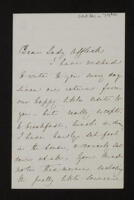 Dear Lady Affleck
I have wished
to write to you every day
since our return from
our happy little visit to
you - but really except
to breakfast, lunch & dine
I have hardly set foot
in the house, & scarcely sat
down at all. Your kind
note this morning inclosing
the pretty little